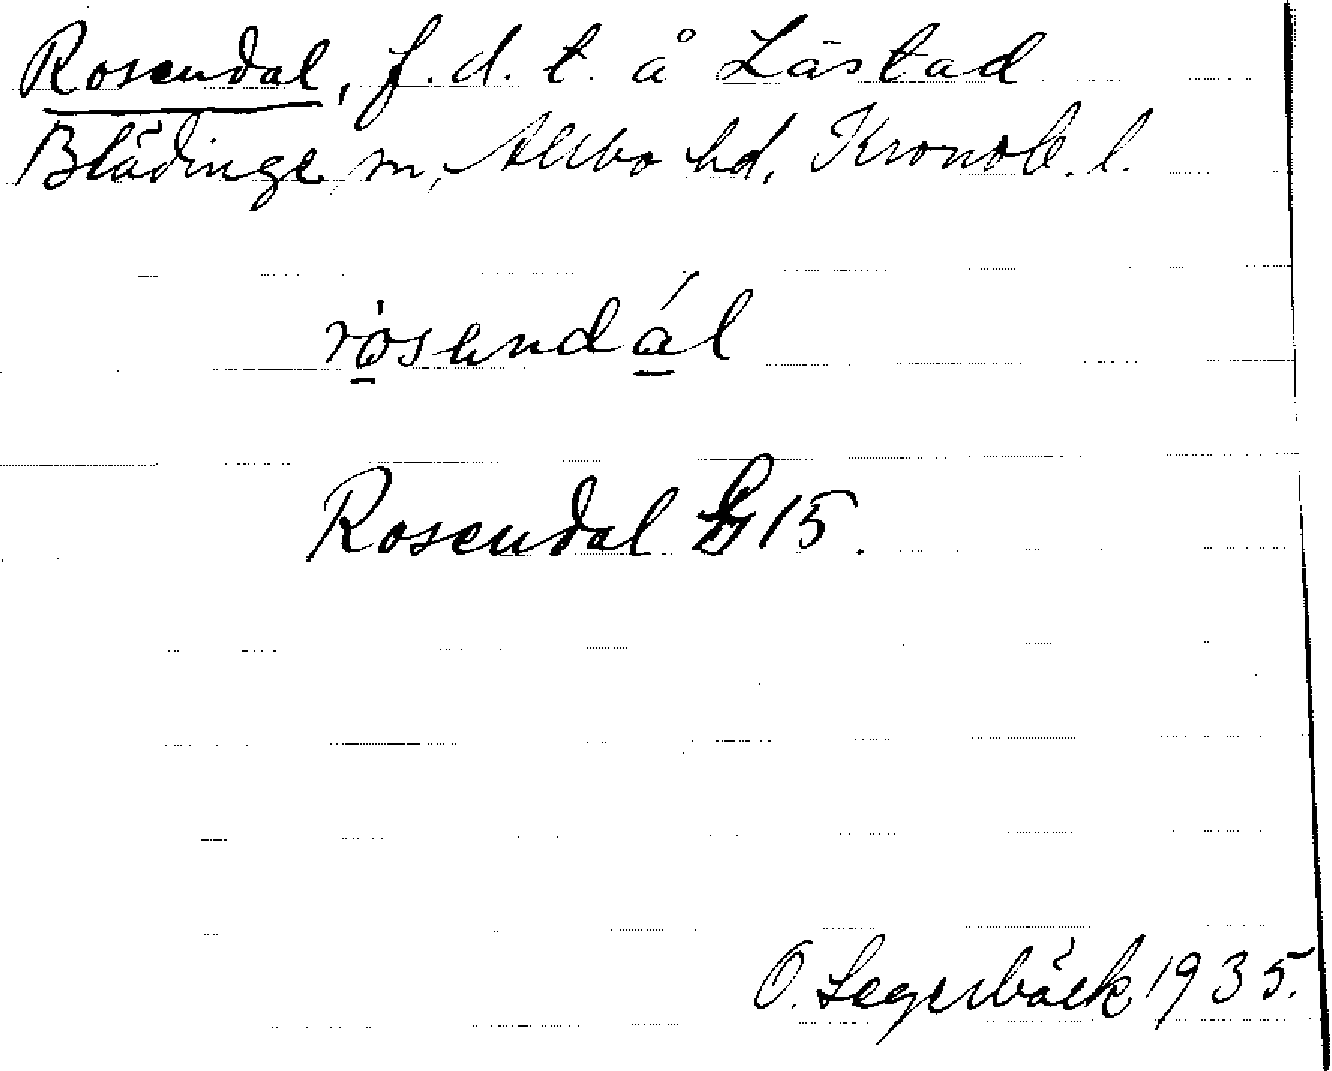 Rosendal, f.d.t. å Lästad
Blädinge sn, Allbo hd, Kronob. l.
rosendál
Rosendal G 15.
O. Segerbäck 1935.